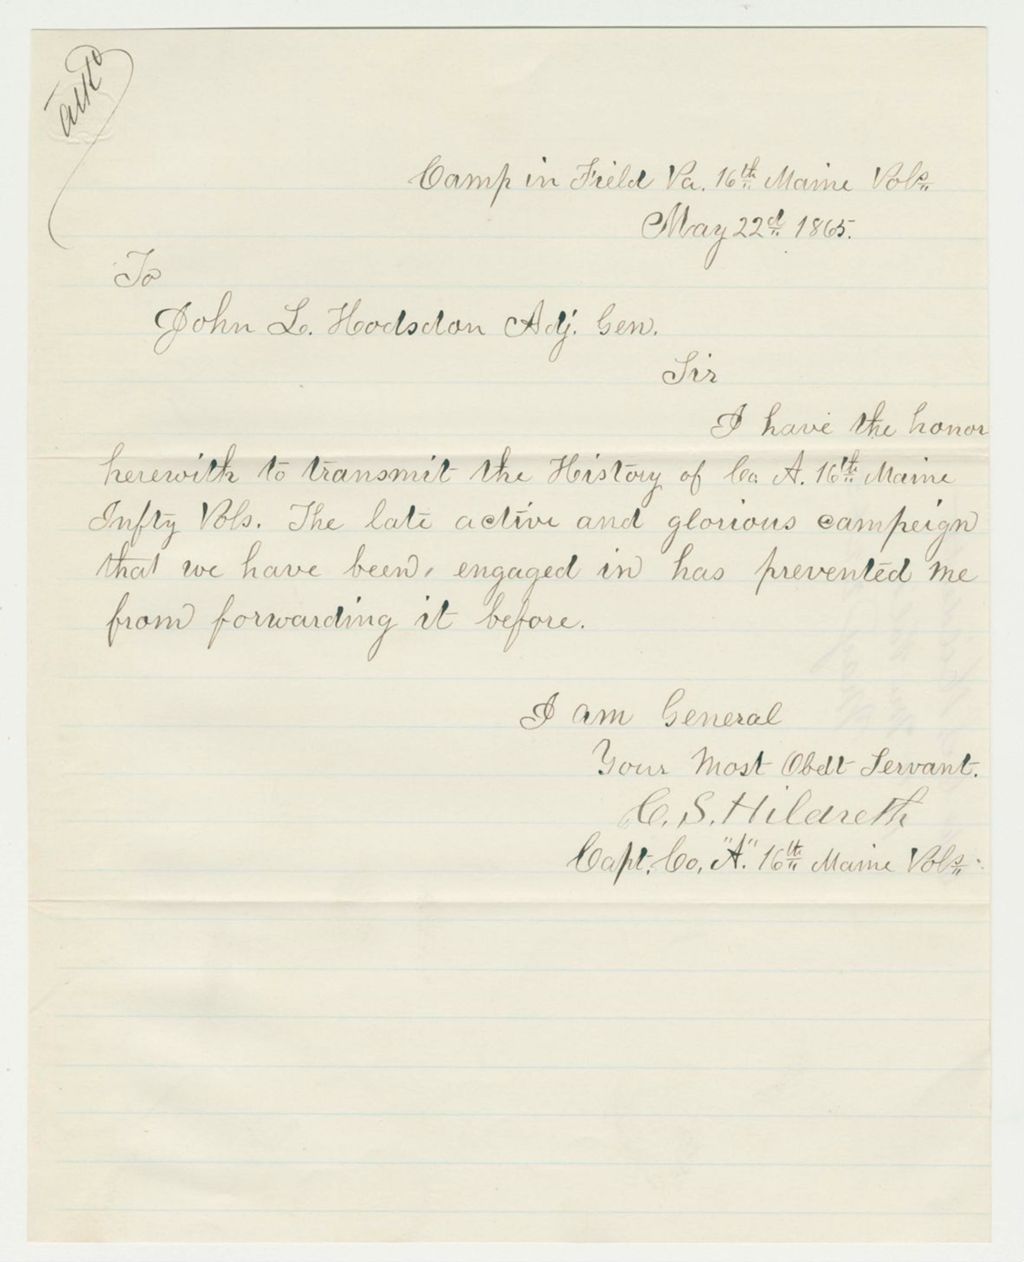 Camp in Field Va. 16th Maine Vols.
May 22d 1865.
To
John L. Hodsdon Adj. Gen.
Sir
I have the honor
herewith to transmit the History of Co A. 16th Maine
Infty Vols. The late active and glorious campeign
that we have been, engaged in has prevented me
from forwarding it before.
I am General
Your Most Obdt Servant.
C. S. Hildreth
Capt. Co, "A." 16th Maine Vols.